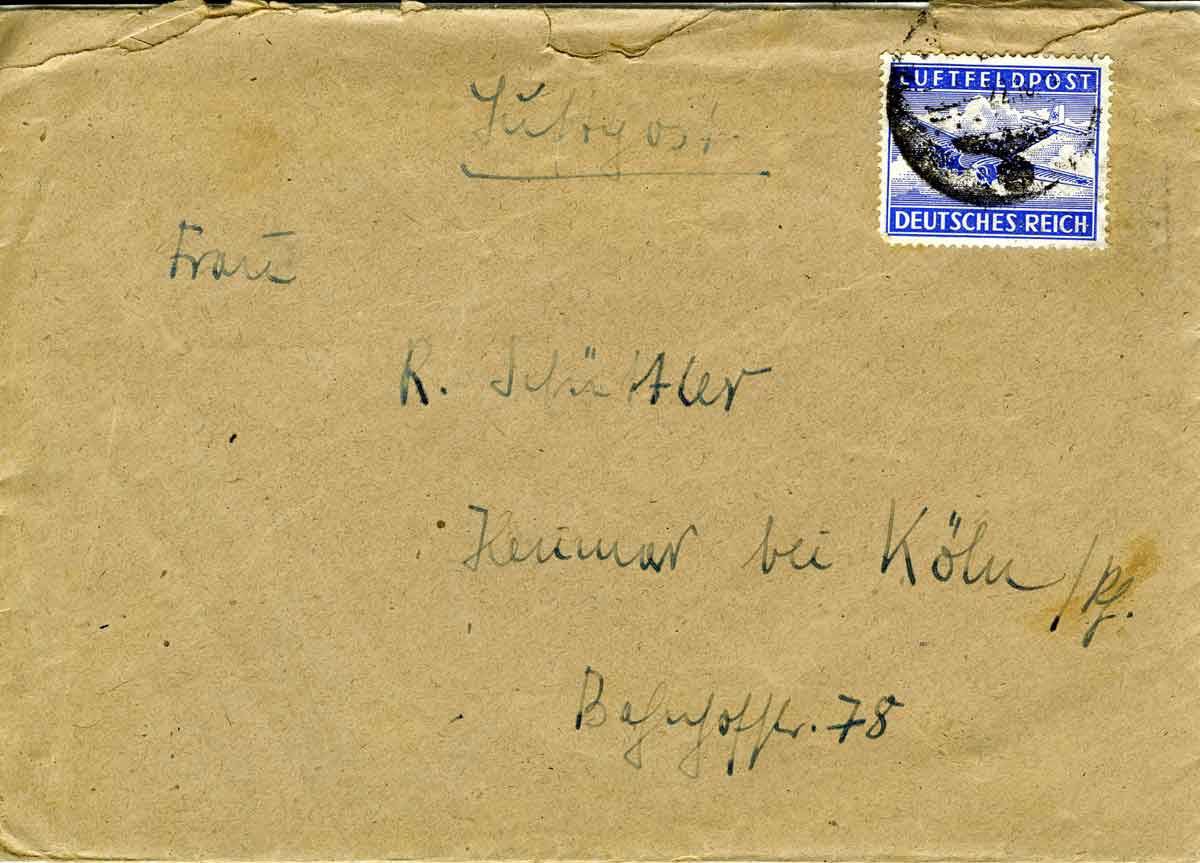 LUFTFELDPOST
Luftpost
DEUTSCHES REICH
Frau
R. Schüttler
Heumar bei Köln /Rh.
Bahnhofstr. 78